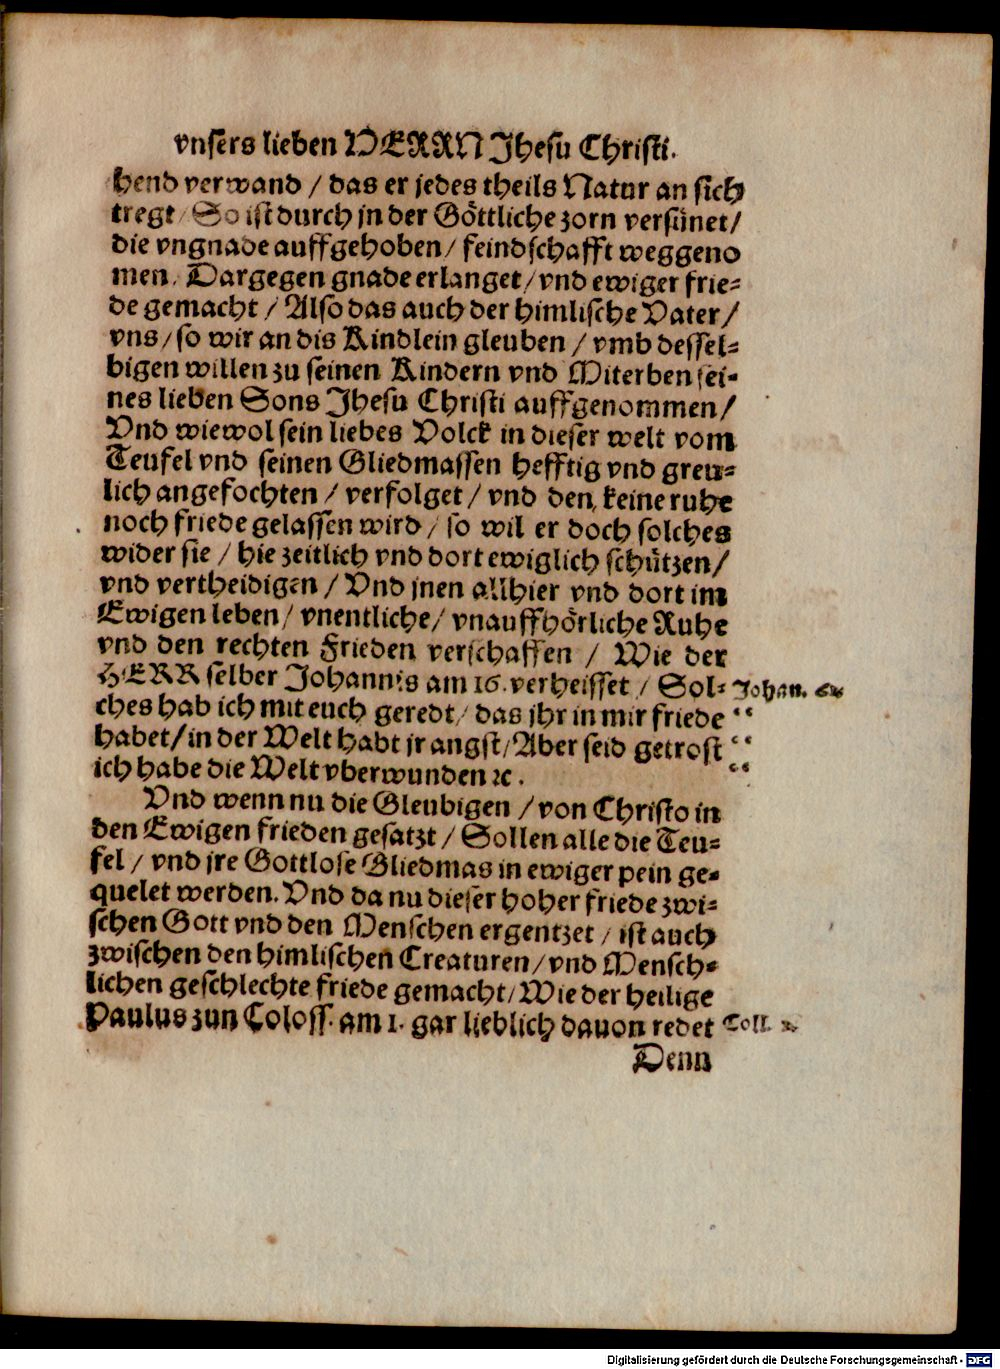 vnsers lieben HERRN Jhesu Christi.
hend verwand / das er jedes theils Natur an sich
tregt / So ist durch jn der Göttliche zorn versünet /
die vngnade auffgehoben / feindschafft weggeno
men / Dargegen gnade erlanget / vnd ewiger frie=
de gemacht / Also das auch der himlische Vater /
vns / so wir an dis Kindlein gleuben / vmb dessel=
bigen willen zu seinen Kindern vnd Miterben sei=
nes lieben Sons Jhesu Christi auffgenommen /
Vnd wiewol sein liebes Volck in dieser welt vom
Teufel vnd seinen Gliedmassen hefftig vnd greu=
lich angefochten / verfolget / vnd den, keine ruhe
noch friede gelassen wird / so wil er doch solches
wider sie / hie zeitlich vnd dort ewiglich schützen /
vnd vertheidigen / Vnd jnen allhier vnd dort im
Ewigen leben / vnentliche / vnauffhörliche Ruhe
vnd den rechten Frieden verschaffen / Wie der
HERR selber Johannis am 16. verheisset / Sol= Johan.
ches hab ich mit euch geredt / das jhr in mir friede
habet / in der Welt habt jr angst / Aber seid getrost
ich habe die Welt vberwunden ꝛc.
Vnd wenn nu die Gleubigen / von Christo in
den Ewigen frieden gesatzt / Sollen alle die Teu=
fel / vnd jre Gottlose Gliedmas in ewiger pein ge=
quelet werden. Vnd da nu dieser hoher friede zwi=
schen Gott vnd den Menschen ergentzet / ist auch
zwischen den himlischen Creaturen / vnd Mensch=
lichen geschlechte friede gemacht / Wie der heilige
Paulus zun Coloss. am 1. gar lieblich dauon redet Coll.
Denn
Digitalisierung gefördert durch die Deutsche Forschungsgemeinschaft - DFG